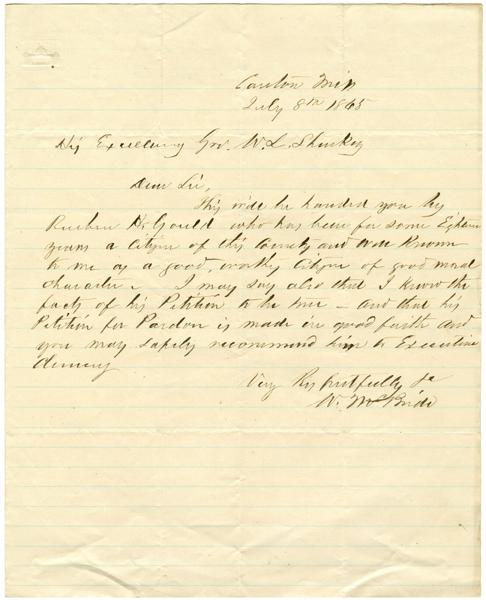 Canton Miss
July 8th 1865
His Excellency Gov. W. L. Sharkey
Dear Sir,
This will be handed you by
Reuben H. Gould who has been for some Eighteen
years a Citizen of this County and well Known
to me as a good, worthy Citizen of good moral
character - I may say also that I know the
facts of his Petition to be true - and that his
Petition for Pardon is made in good faith and
you may safely recommend him to Executive
clemency
Very Respectfully &c
W. McBride